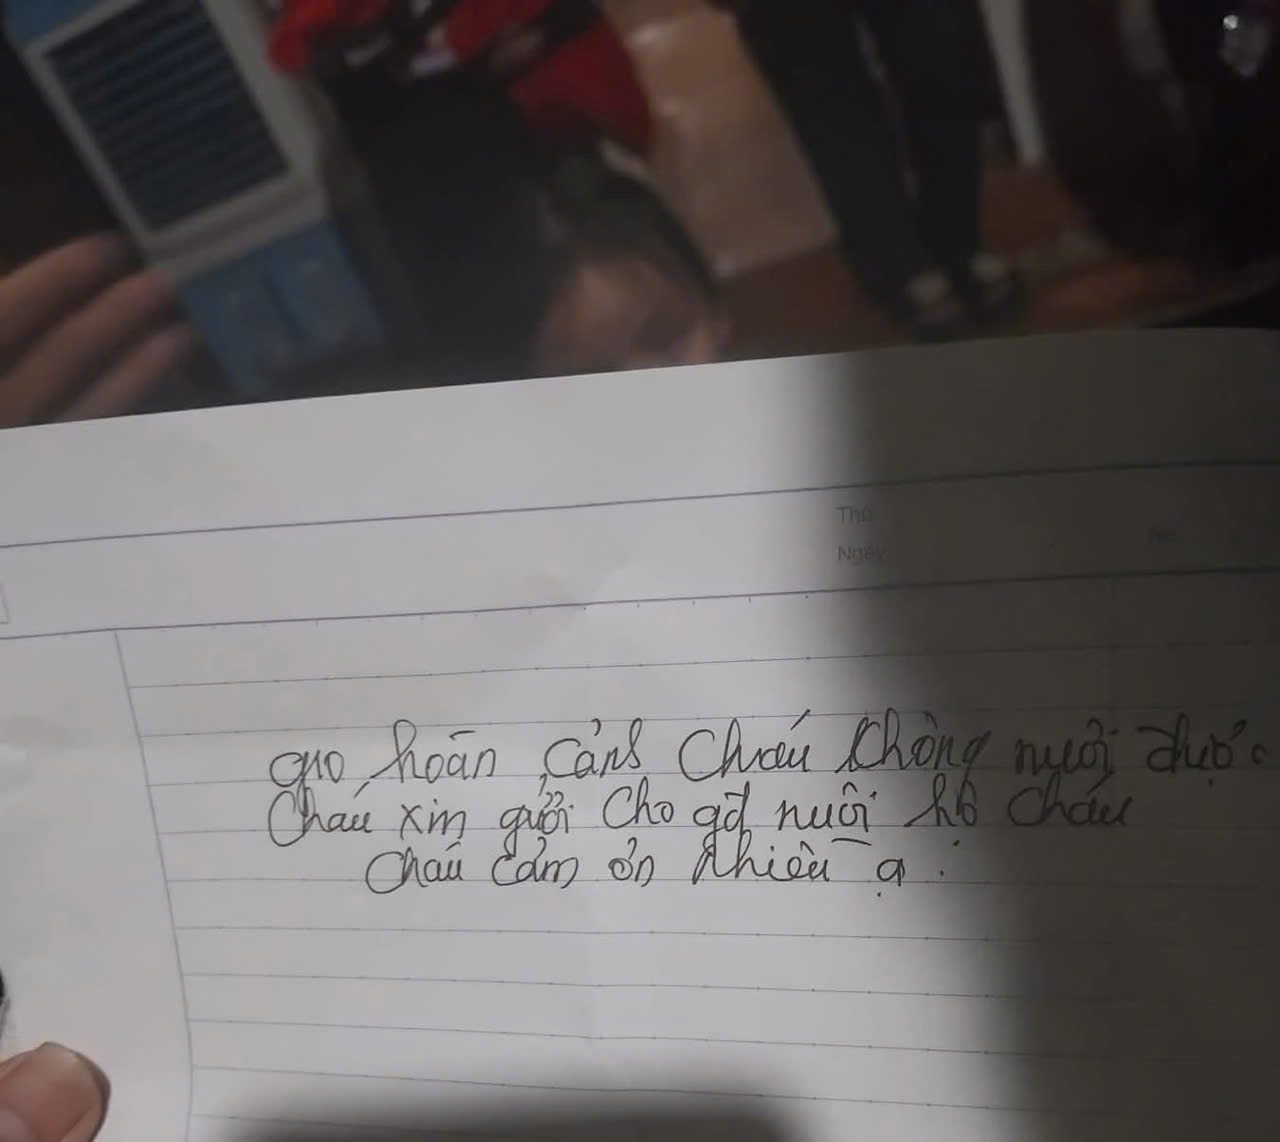 Thứ
Ngày
No
quo hoãn cảnh Cháu không nuôi được
Cháu xin gửi cho gđ nuôi hộ cháu
Cháu cảm ơn nhiều ạ.